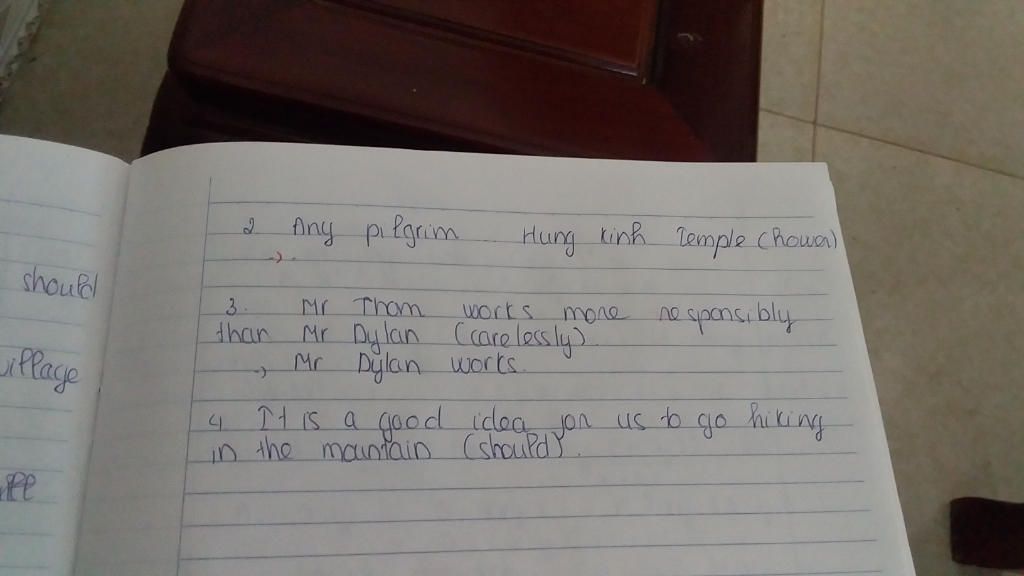 should
village
2 Any pilgrim Hung Kinh Temple (
→.
3. Mr Thom works more responsibly
than Mr Dylan (carelessly)
→ Mr Dylan works.
4 It is a good idea for us to go hiking
in the mountain (should).